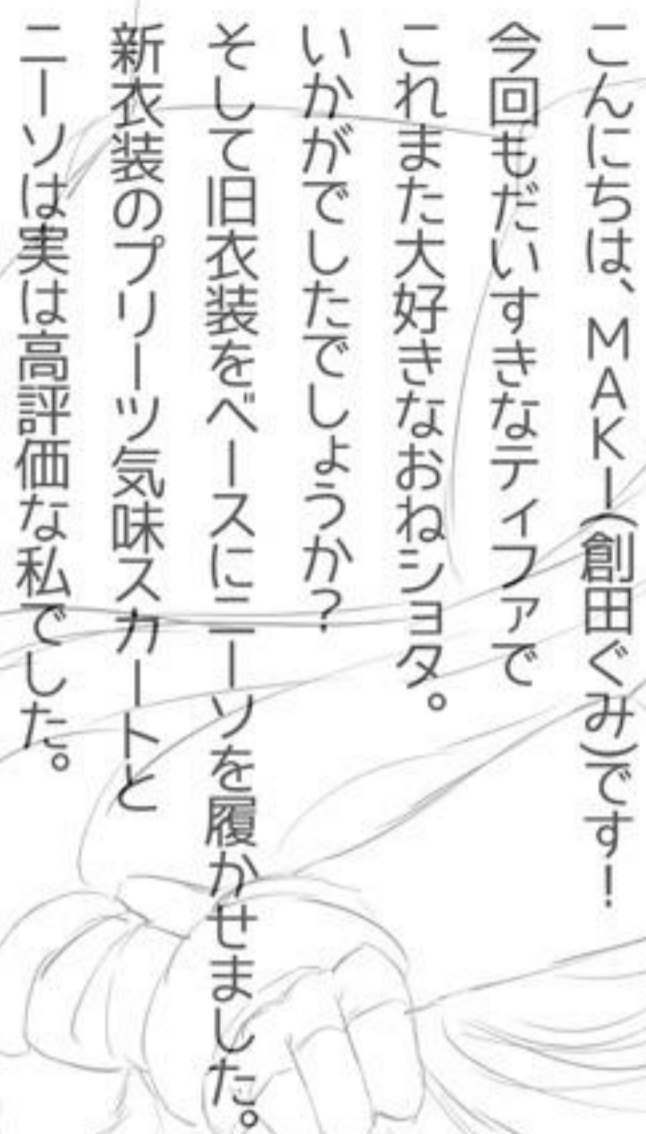 こんにちは、MAKI(創田ぐみ)です!
今回もだいすきなティファで
これまた大好きなおねショタ。
いかがでしたでしょうか?
そして旧衣装をベースにニーソを履かせました。
新衣装のプリーツ気味スカートと
ニーソは実は高評価な私でした。